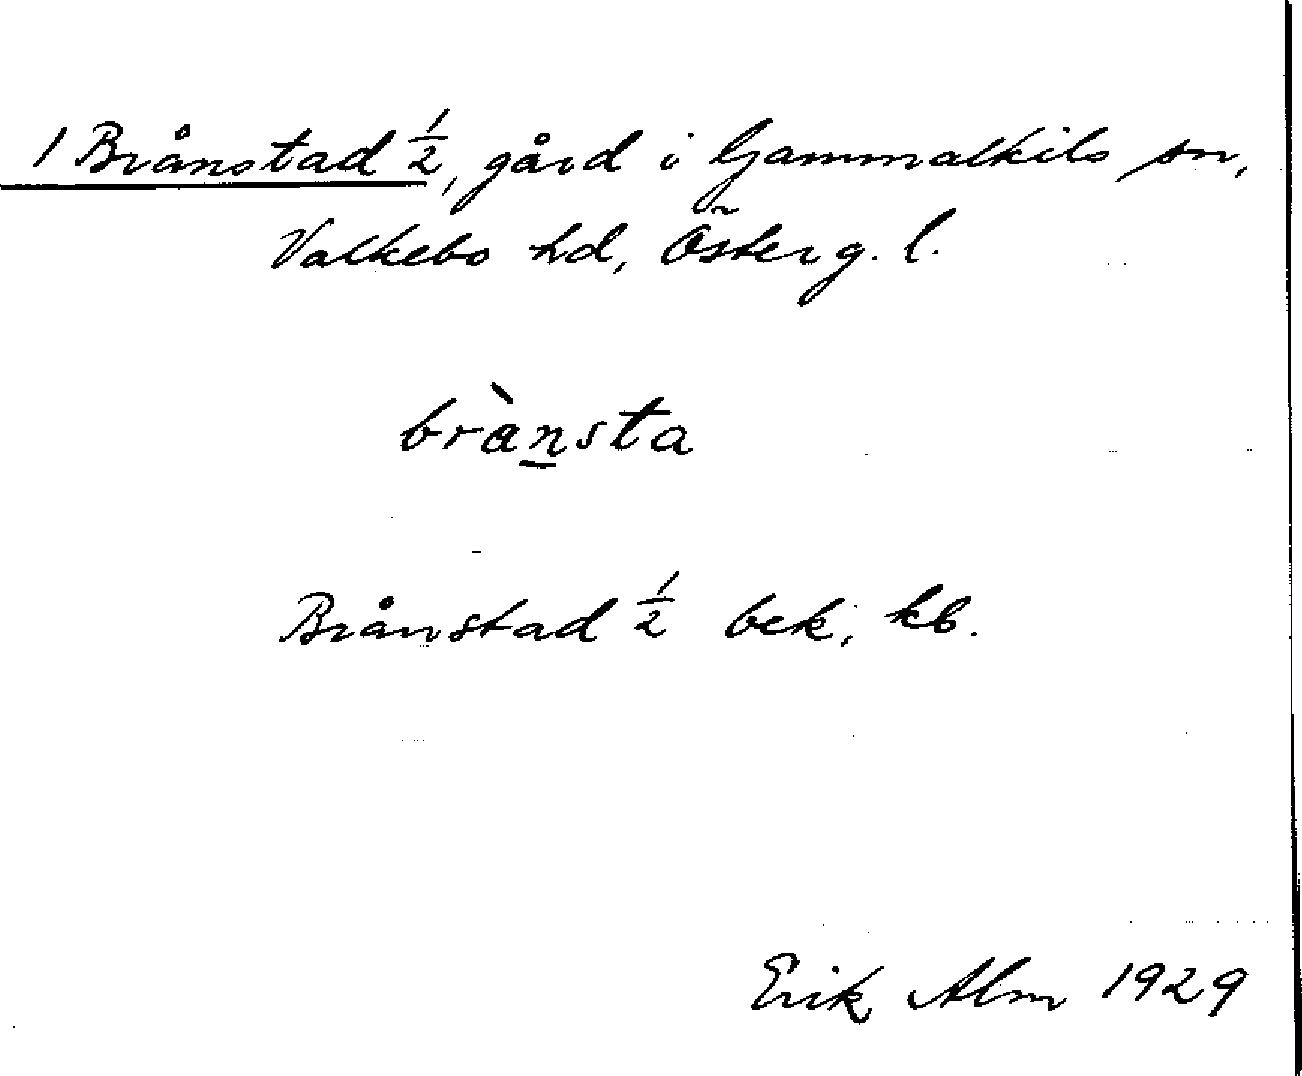 1 Brånstad ½, gård i Gammalkils sn,
Valkebo hd, Österg. l.
brànsta
Brånstad ½ bek, kb.
Erik Alm 1929